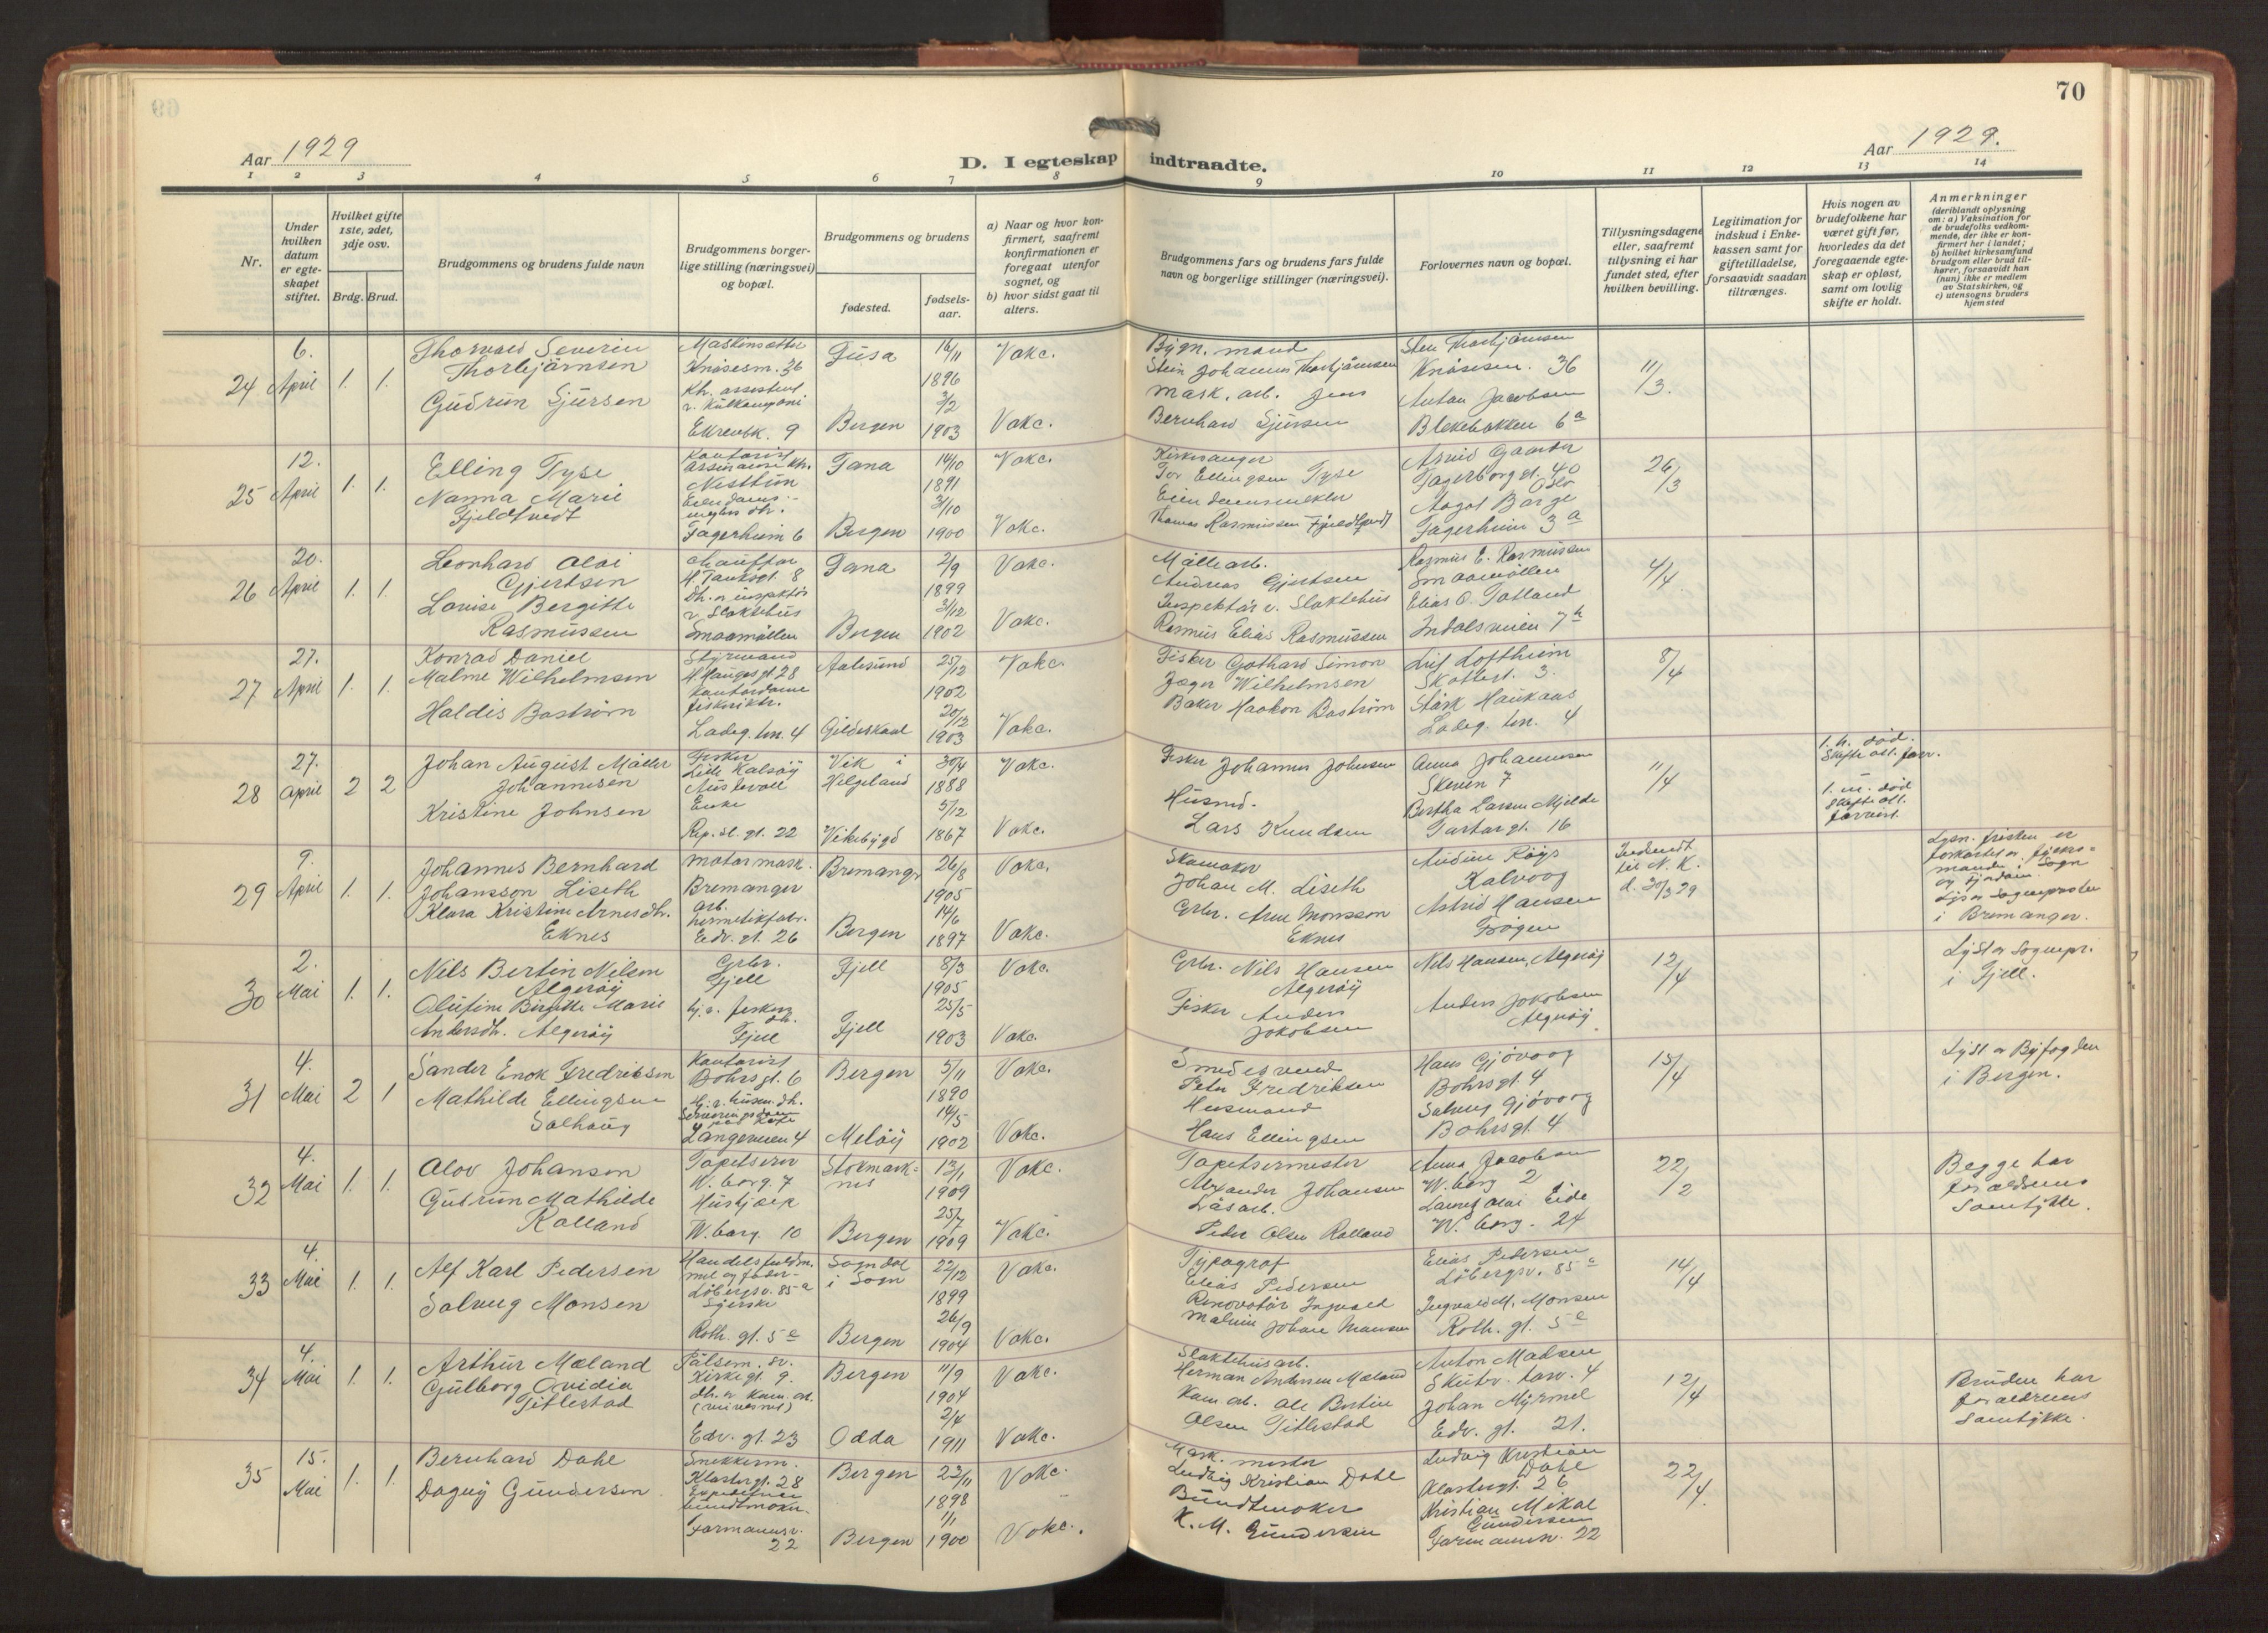 70
Aar 1929
Aar 1929.
D. I egteskap indtraadte.
1 2 3 4 5 6 7 8 9 10 11 12 13 14
Nr.
Under hvilken datum er egteskapet stiftet.
Hvilket gifte 1ste, 2det, 3dje osv.
Brdg. Brud.
Brudgommens og brudens fulde navn
Brudgommens borgerlige stilling (næringsvei) og bopæl.
Brudgommens og brudens
fødested.
fødselsaar.
a) Naar og hvor konfirmert, saafremt konfirmationen er foregaat utenfor sognet, og
b) hvor sidst gaat til alters.
Brudgommens fars og brudens fars fulde navn og borgerlige stillinger (næringsvei).
Forlovernes navn og bopæl.
Tillysningsdagene eller, saafremt tillysning ei har fundet sted, efter hvilken bevilling.
Legitimation for indskud i Enkekassen samt for giftetilladelse, forsaavidt saadan tiltrænges.
Hvis nogen av brudefolkene har været gift før, hvorledes da det foregaaende egteskap er opløst, samt om lovlig skifte er holdt.
Anmerkninger
(deriblandt oplysning om: a) Vaksination for de brudefolks vedkommende, der ikke er konfirmert her i landet; b) hvilket kirkesamfund brudgom eller brud tilhører, forsaavidt han (hun) ikke er medlem av Statskirken, og c) utensogns bruders hjemsted
24
6. April
1. 1.
Thorvald Severin Thorbjörnsen
Gudrun Sjursen
Knøsesm. 36
Fusa
16/11 1896
Vakc.
Bergen
3/2 1903
Vakc.
Bygn. mand
Stein Johannes Thorbjörnsen
Mask. arb. Jens
Bernhard Sjursen
Sten Thorbjörnsen
Knøsesm. 36
Anton Jacobsen
Blekebakken 6a
11/3.
25
12. April
1. 1.
Elling Tyse
Nanna Marie Fjeldtvedt
Kontorist
Nesttun
Eiendomsmeglers dh.
Fagerheim 6
Fana
14/10 1891
Vakc.
Bergen
3/10 1900
Vakc.
Kirkesanger
Tor Ellingsen Tyse
Eiendomsmekler
Thomas Rasmussen Fjeldtvedt
Fagerborg gt. 40
Oslo
Aagot Barge
Fagerheim 3a
26/3
26
20. April
1. 1.
Leonhard Olai Gjertsen
Louise Bergitte Rasmussen
Chauffør
H. Tanksgt. 8
dh. av inspektør
v. Slaktehus
Smaamöllen
Fana
2/9 1899
Vakc.
Bergen
3/12 1902
Vakc.
Möllearb.
Andreas Gjertsen
Inspektör v. Slaktehus
Rasmus Elias Rasmussen
Rasmus E. Rasmussen
Smaamöllen
Elias O. Totland
Indalsveien 7h
4/4
27
27. April
1. 1.
Konrad Daniel Malme Wilhelmsen
Haldis Boström
Styrmand
H. Hauges gt. 28
Kontordame
Ladeg. ten. 4
Aalesund
25/12 1902
Vakc.
Gildeskaal
20/12 1903
Vakc.
Fisker Gothard Simon
Jæger Wilhelmsen
Baker Haakon Boström
Leif Loftheim
Skottegt. 3.
Ladeg. ten. 4
8/4
28
27. April
2 2
Johan August Möller Johannesen
Kristine Johnsen
Fisker
Lille Kalsöy
Austevoll
Enke
Rep. sl. gt. 22
Vik i Helgeland
30/4 1888
Vakc.
Vikebygd
5/12 1867
Vakc.
Fisker Johannes Johnsen
Husmd.
Lars Knudsen
Anna Johannesen
Skeven 7
Bertha Larsen Mjelde
Tartargt. 16
11/4
1. h. död.
Skifte att. forev.
1. m. död
Skifte att. forevist.
29
9. April
1. 1.
Johannes Bernhard Johansson Liseth
Klara Kristine Arnesdh. Eknes
Motormask.
Bremanger
arb. hermetikfabr.
Edv. gt. 26
Bremanger
26/8 1905
Vakc.
Bergen
14/6 1897
Vakc.
Skomaker
Johan M. Liseth
Grbr. Arne Monsson Eknes
Audun Röys
Kalvaag
Astrid Hansen
Indsendt til N. K.
d. 30/3 29
Lysn. fristen er forkortet av fylkesmanden i Sogn og Fjordane.
Lyst av sognepresten i Bremanger.
30
2. Mai
1. 1.
Nils Bertin Nilsen Algeröy
Olufine Birgitte Marie Andersdh. Algeröy
Grbr.
Fjell
Fjell
Fjell
8/3 1905
Vakc.
Fjell
25/5 1903
Vakc.
Grbr. Nils Hansen Algeröy
Fisker Anders Jokobsen
Nils Hansen, Algeröy
Anders Jokobsen Algeröy
12/4
Lyst av Sognepr. i Fjell.
31
4. Mai
2 1
Sander Enok Fredriksen
Mathilde Ellingsen Solhaug
Kontorist
Bohrsgt. 6
Langeveien 4
Bergen
5/11 1890
Vakc.
Melöy
14/5 1902
Vakc.
Smedesvend
Peter Fredriksen
Husmand
Hans Ellingsen
Hans Gjövaag
Bohrsgt. 4
Solveig Gjövaag
Bohrsgt. 4
15/4
Lyst av Byfogden i Bergen.
32
4. Mai
1. 1.
Olav Johansen
Gudrun Mathilde Rolland
Tapetserer
W. borg. 7
Hushjælp
W. borg. 10
Stokmarknes
13/1 1909
Vakc.
Bergen
25/7 1909
Vakc.
Tapetserermester
Alexander Johansen
Låsarb.
Peder Olsen Rolland
Anna Jacobsen
W. borg 2
Olai Eide
W. borg. 24
22/2
Begge har forældrens Samtykke.
33
4. Mai
1. 1.
Alf Karl Pedersen
Solveig Monsen
Löbergsv. 85a
Syerske
Roth. gt. 5e
Sogndal i Sogn
22/12 1899
Vakc.
Bergen
26/9 1904
Vakc.
Typograf
Elias Pedersen
Renovatör Ingvald
Malvin Johan Monsen
Elias Pedersen
Löbergsv. 85a
Ingvald M. Monsen
Roth. gt. 5e
14/4
34
4. Mai
1. 1.
Arthur Mæland
Gulborg Ovidia Titlestad
Pölsem. sv.
Kirkegt. 9.
dh. av kom. arb.
Edv. gt. 23
Bergen
11/9 1904
Vakc.
Odda
2/4 1911
Vakc.
Slaktehusarb.
Herman Andersen Mæland
Kom. arb. Ole Bertin
Olsen Titlestad
Anton Madsen
Skutev. torv. 4
Johan Myrmel
Edv. gt. 21.
12/4
Bruden har forældrenes Samtykke.
35
15. Mai
1. 1.
Bernhard Dahl
Dagny Gundersen
Snekkerm.
Klostergt. 28
Formannsv. 22
Bergen
22/11 1898
Vakc.
Bergen
1/1 1900
Vakc.
Mask. mester
Ludvig Kristian Dahl
Bundtmaker
K. M. Gundersen
Ludvig Kristian Dahl
Klostergt. 26
Kristian Mikal Gundersen
Formannsv. 22
22/4.